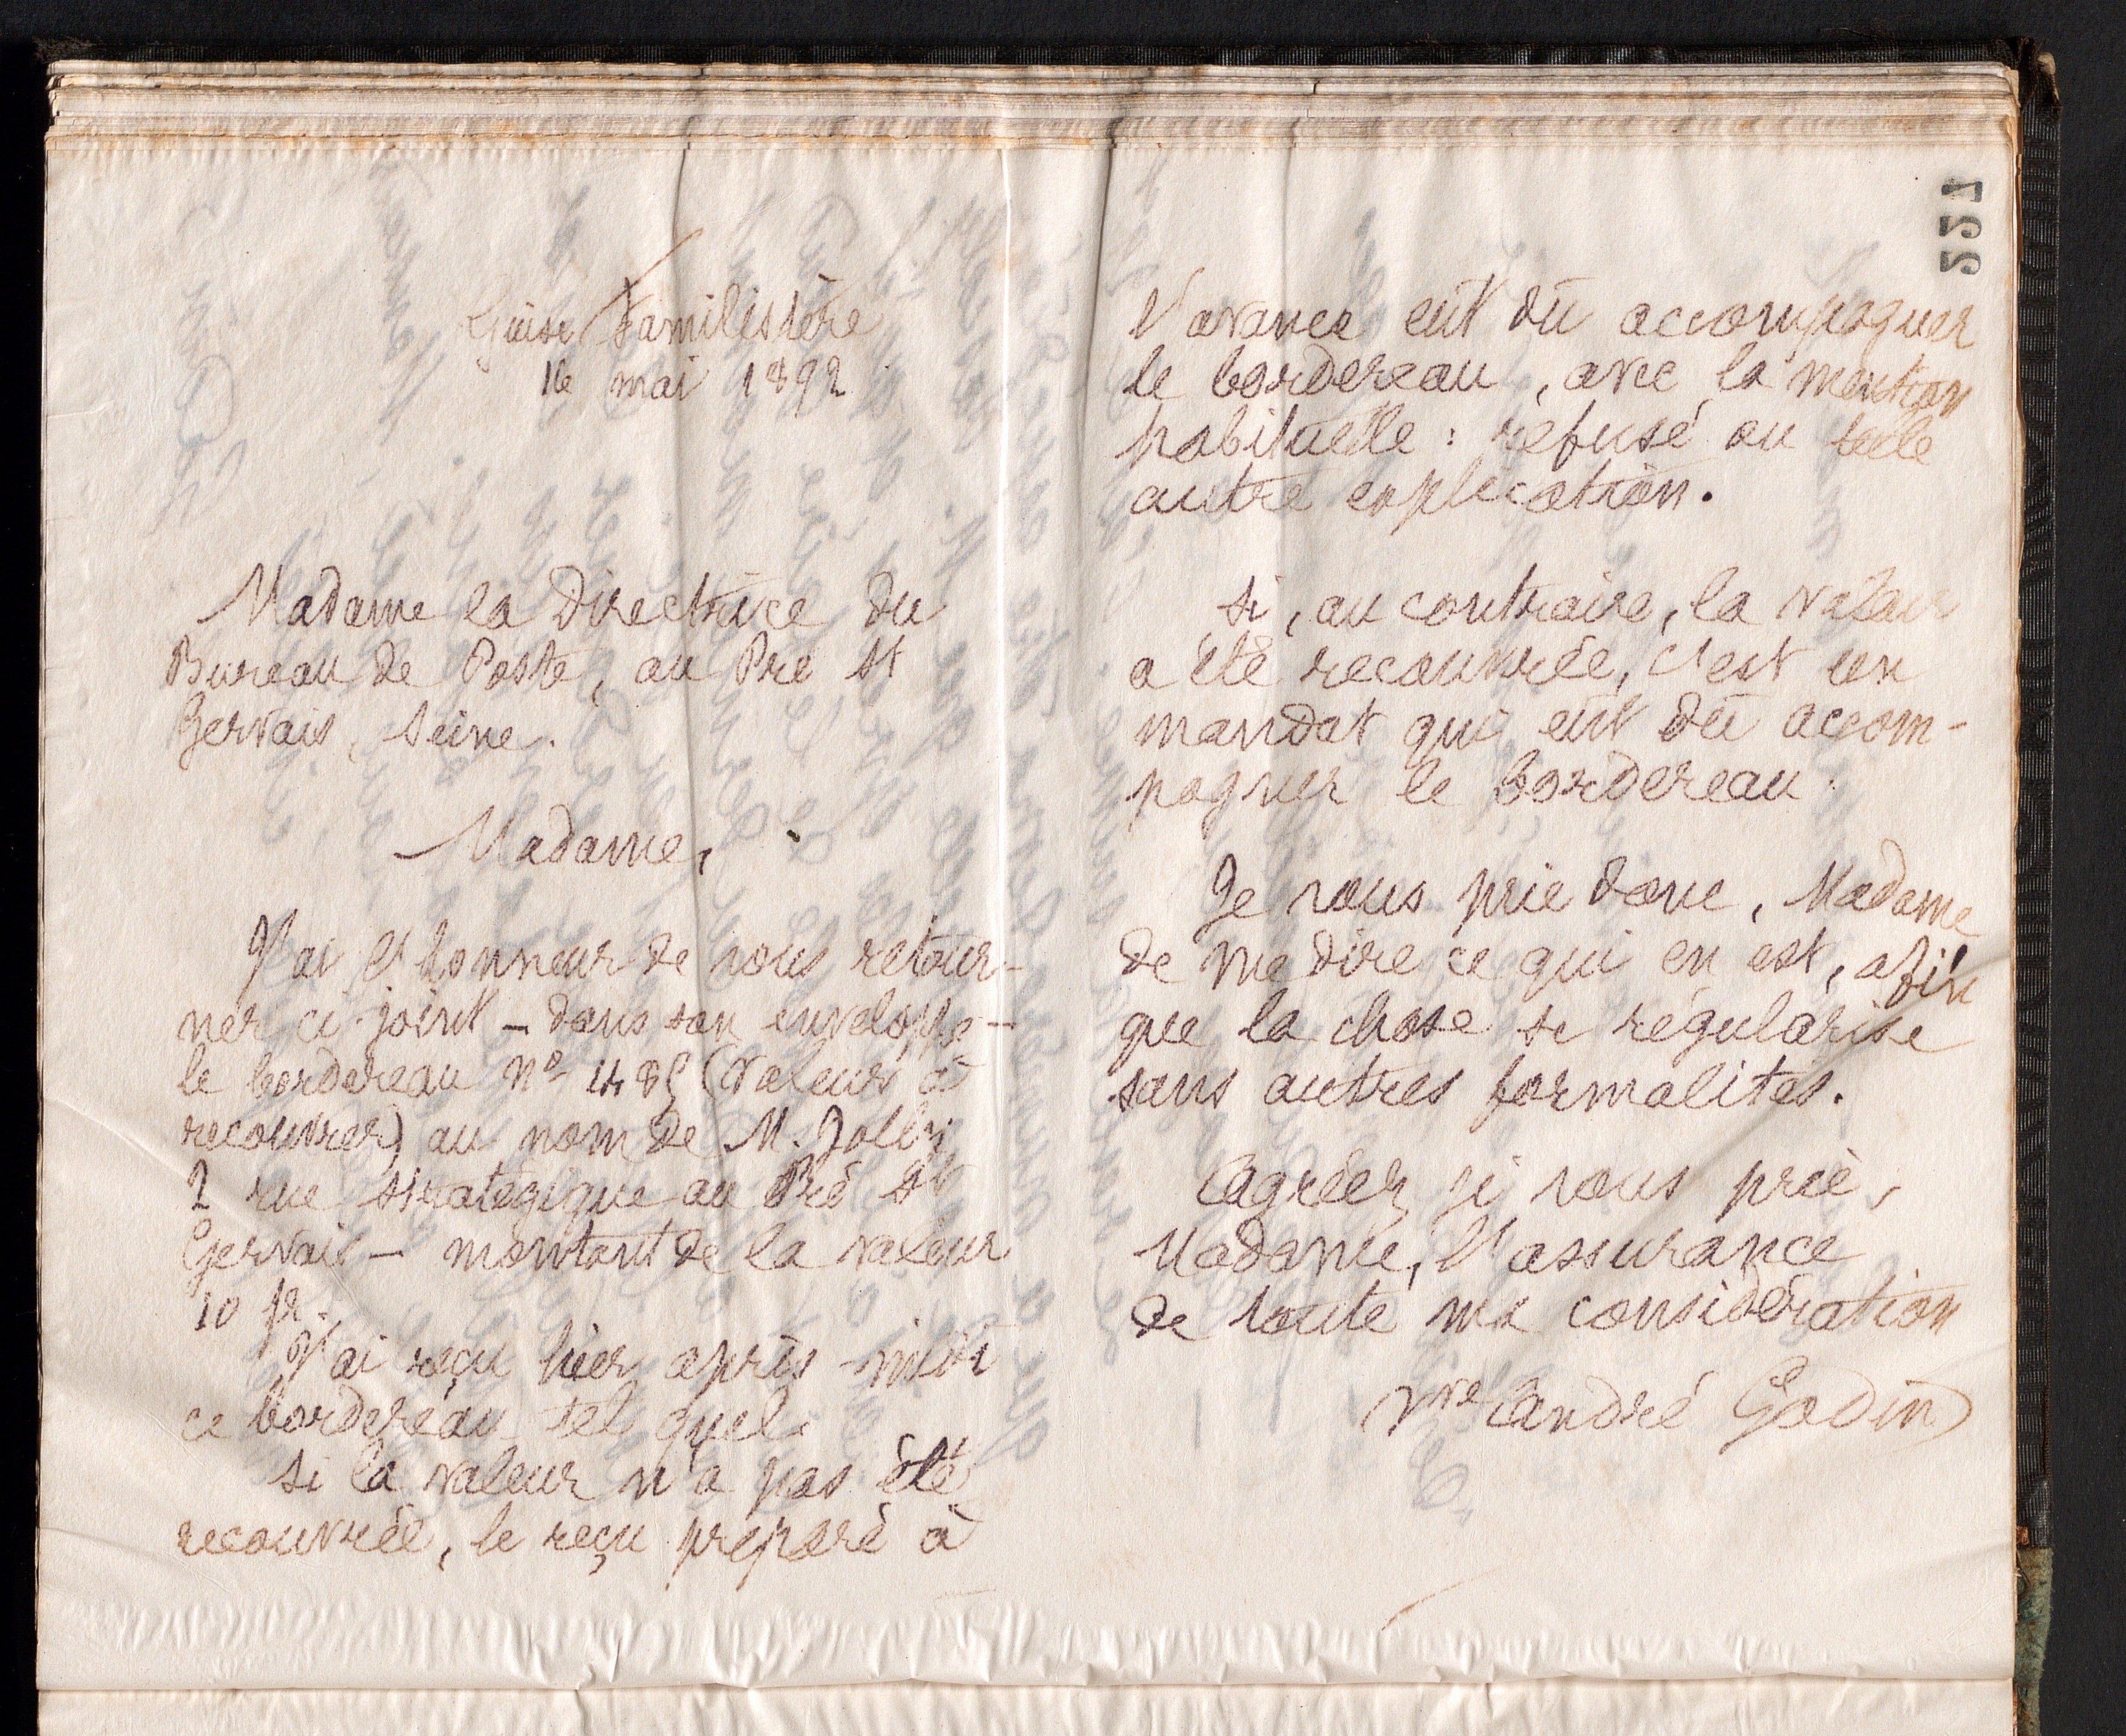 Guise Familistère
16 mai 1892
Madame la Directrice du
Bureau de Poste, au Pré St
Gervais, Seine.
Madame,
J'ai l'honneur de vous retour-
ner ci-joint – dans son enveloppe –
le bordereau No 1485 (valeurs à
recouvrer) au nom de M. Jolly
2 rue stratégique au Pré St
Gervais – montant de la valeur
10 fr.
J'ai reçu hier après-midi
ce bordereau tel quel.
Si la valeur n'a pas été
recouvrée, le reçu préparé à
551
l'avance eût dû accompagner
le bordereau, avec la mention
habituelle : refusé ou telle
autre explication.
Si, au contraire, la valeur
a été recouvrée, c'est un
mandat qui eût dû accom-
pagner le bordereau.
Je vous prie donc, Madame
de me dire ce qui en est, afin
que la chose se régularise
sans autres formalités.
Agréez, je vous prie,
Madame, l'assurance
de toute ma considération
Vve André Godin